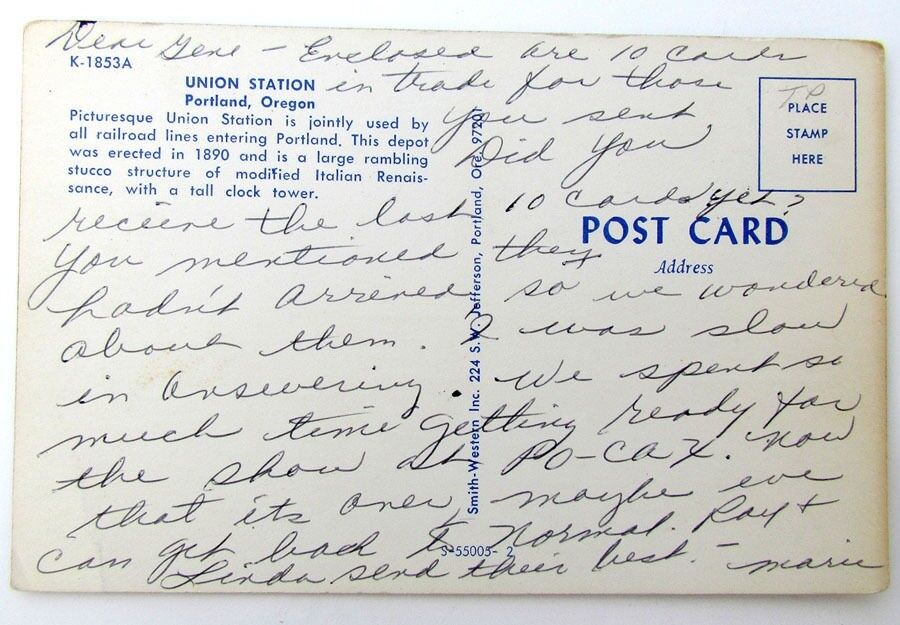 Dear Gene - Enclosed are 10 cards
in trade for those
you sent.
Did you
receive the last 10 cards yet?
You mentioned they
hadn't arrived so we wondered
about them. I was slow
in answering. We spent so
much time getting ready for
the show at PO-CAX. Now
that its over, maybe we
can get back to normal. Ray +
Linda send their best. - Marie
K-1853A
UNION STATION
Portland, Oregon
Picturesque Union Station is jointly used by
all railroad lines entering Portland. This depot
was erected in 1890 and is a large rambling
stucco structure of modified Italian Renais-
sance, with a tall clock tower.
Smith-Western Inc. 224 S.W. Jefferson, Portland, Ore. 97201
TP
PLACE
STAMP
HERE
POST CARD
Address
S-55005-2